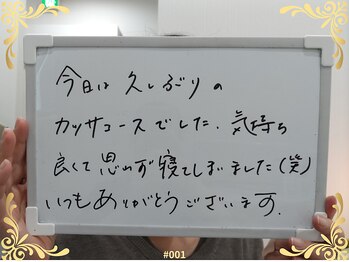 今日は久しぶりの
カッサコースでした。気持ち
良くて思わず寝てしまいました(笑)
いつもありがとうございます。
#001